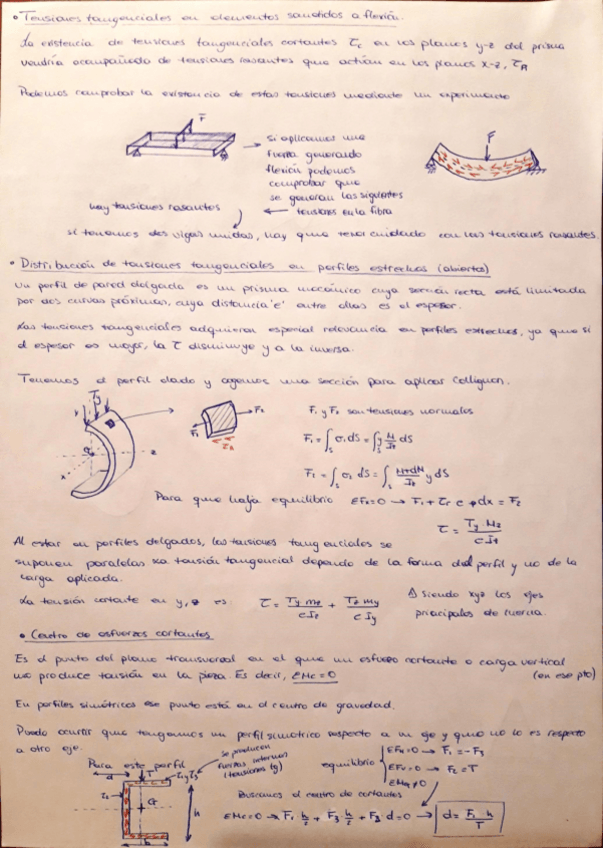 • Tensiones tangenciales en elementos sometidos a flexión.
La existencia de tensiones tangenciales cortantes τc en los planos y-z del prisma
vendría acompañado de tensiones rasantes que actúan en los planos x-z, τR
Podemos comprobar la existencia de estas tensiones mediante un experimento
F
→ si aplicamos una
fuerza generando
flexión podemos
comprobar que
se generan las siguientes
tensiones en la fibra
F
hay tensiones rasantes ←
si tenemos dos vigas unidas, hay que tener cuidado con las tensiones rasantes.
• Distribución de tensiones tangenciales en perfiles estrechos (abiertos)
Un perfil de pared delgada es un prisma mecánico cuya sección recta está limitada
por dos curvas próximas, cuya distancia 'e' entre ellas es el espesor.
Las tensiones tangenciales adquieren especial relevancia en perfiles estrechos, ya que si
el espesor es mayor, la τ disminuye y a la inversa.
Tenemos el perfil dado y cogemos una sección para aplicar Collignon.
Ty
y
G
x
z
F1
F2
τR
F1 y F2 son tensiones normales
F1 = ∫s σ1 ds = ∫s y M/Iz ds
F2 = ∫s σ2 ds = ∫s M+dM/Iz y ds
Para que haya equilibrio ΣFx=0 → F1 + τr e dx = F2
τ = Ty Mz / e Iz
Al estar en perfiles delgados, las tensiones tangenciales se
suponen paralelas. La tensión tangencial depende de la forma del perfil y no de la
carga aplicada.
La tensión cortante en y, z es: τ = Ty mz / e Iz + Tz my / e Iy
Δ siendo xyz los ejes
principales de inercia.
• Centro de esfuerzos cortantes
Es el punto del plano transversal en el que un esfuerzo cortante o carga vertical
no produce torsión en la pieza. Es decir, ΣMc=0 (en ese pto)
En perfiles simétricos ese punto está en el centro de gravedad.
Puede ocurrir que tengamos un perfil simétrico respecto a un eje y que no lo es respecto
a otro eje.
Para este perfil
se producen
fuerzas internas
(tensiones tg)
d
T
G
h
b
equilibrio
ΣFH=0 → F1=-F3
ΣFV=0 → F2=T
ΣM≠0
Buscamos el centro de cortantes
ΣMc=0 → F1 h/2 + F3 h/2 + F2 d=0 → d = F1 h / T